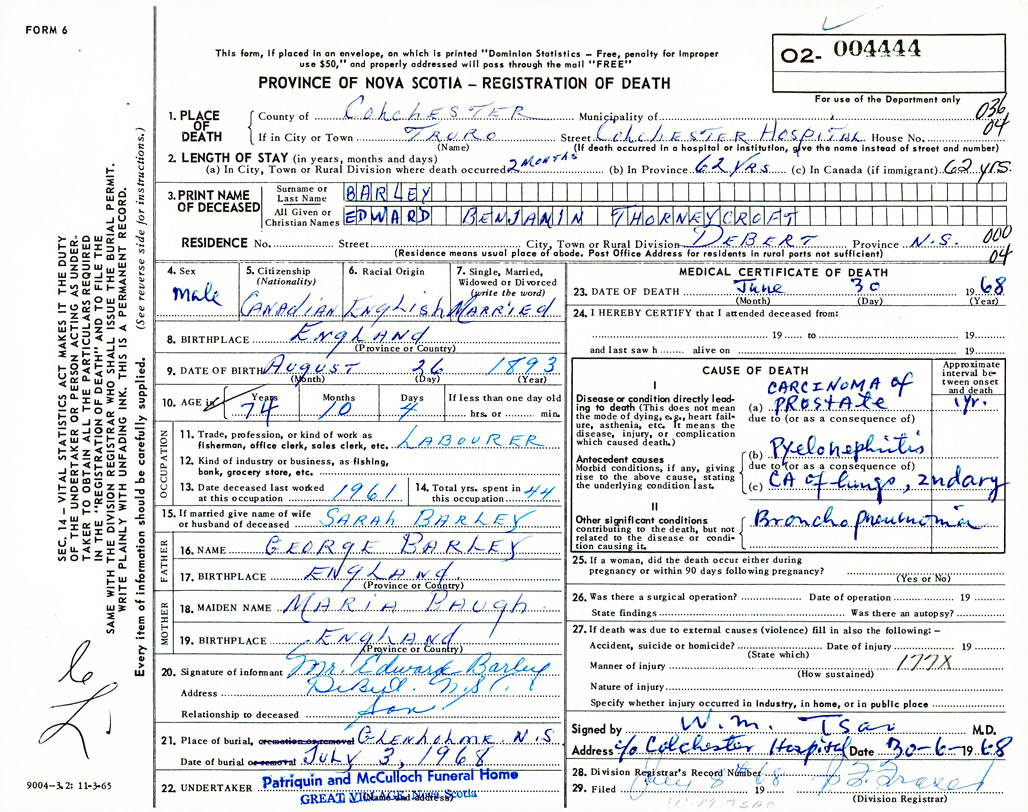 FORM 6
This form, if placed in an envelope, on which is printed "Dominion Statistics – Free, penalty for improper
use $50," and properly addressed will pass through the mail "FREE"
PROVINCE OF NOVA SCOTIA – REGISTRATION OF DEATH
O2- 004444
For use of the Department only
036
04
1. PLACE OF DEATH
County of COLCHESTER Municipality of
If in City or Town TRURO Street COLCHESTER HOSPITAL House No.
(Name) (If death occurred in a hospital or institution, give the name instead of street and number)
2. LENGTH OF STAY (in years, months and days)
(a) In City, Town or Rural Division where death occurred 2 MONTHS (b) In Province 62 YRS (c) In Canada (if immigrant) 62 yrs.
3. PRINT NAME OF DECEASED
Surname or Last Name BARLEY
All Given or Christian Names EDWARD BENJAMIN THORNEYCROFT
RESIDENCE No. Street City, Town or Rural Division DEBERT Province N.S. 000
04
(Residence means usual place of abode. Post Office Address for residents in rural parts not sufficient)
4. Sex
Male
5. Citizenship
(Nationality)
Canadian
6. Racial Origin
English
7. Single, Married,
Widowed or Divorced
(write the word)
Married
8. BIRTHPLACE ENGLAND
(Province or Country)
9. DATE OF BIRTH AUGUST 26 1893
(Month) (Day) (Year)
10. AGE in Years Months Days If less than one day old
74 10 4 hrs. or min.
OCCUPATION
11. Trade, profession, or kind of work as
fisherman, office clerk, sales clerk, etc. LABOURER
12. Kind of industry or business, as fishing,
bank, grocery store, etc.
13. Date deceased last worked
at this occupation 1961
14. Total yrs. spent in
this occupation 44
15. If married give name of wife
or husband of deceased SARAH BARLEY
FATHER
16. NAME GEORGE BARLEY
17. BIRTHPLACE ENGLAND
(Province or Country)
MOTHER
18. MAIDEN NAME MARIA BAUGH
19. BIRTHPLACE ENGLAND
(Province or Country)
20. Signature of informant Mr. Edward Barley
Address N.S.
Relationship to deceased Son
21. Place of burial, cremation or removal GLENHOLME N.S.
Date of burial or removal JULY 3, 1968
22. UNDERTAKER Patriquin and McCulloch Funeral Home
GREAT VILLAGE, Nova Scotia
(Name and address)
MEDICAL CERTIFICATE OF DEATH
23. DATE OF DEATH June 30 1968
(Month) (Day) (Year)
24. I HEREBY CERTIFY that I attended deceased from:
19 to 19
and last saw h alive on 19
CAUSE OF DEATH
Approximate
interval be-
tween onset
and death
I
Disease or condition directly lead-
ing to death (This does not mean
the mode of dying, e.g., heart fail-
ure, asthenia, etc. It means the
disease, injury, or complication
which caused death.)
CARCINOMA of
(a) PROSTATE 1yr.
due to (or as a consequence of)
Antecedent causes
Morbid conditions, if any, giving
rise to the above cause, stating
the underlying condition last.
(b) Pyelonephritis
due to (or as a consequence of)
(c) CA of lungs, 2ndary
II
Other significant conditions
contributing to the death, but not
related to the disease or condi-
tion causing it.
Bronchopneumonia
25. If a woman, did the death occur either during
pregnancy or within 90 days following pregnancy?
(Yes or No)
26. Was there a surgical operation? Date of operation 19
State findings Was there an autopsy?
27. If death was due to external causes (violence) fill in also the following: –
Accident, suicide or homicide? Date of injury 19
(State which)
Manner of injury 177X
(How sustained)
Nature of injury
Specify whether injury occurred in industry, in home, or in public place
Signed by W. M. Tsai M.D.
Address c/o Colchester Hospital Date 30-6-1968
28. Division Registrar's Record Number
29. Filed July 8 19 68
(Division Registrar)
SEC. 14 – VITAL STATISTICS ACT MAKES IT THE DUTY
OF THE UNDERTAKER OR PERSON ACTING AS UNDER-
TAKER TO OBTAIN ALL THE PARTICULARS REQUIRED
IN THE "REGISTRATION OF DEATH" AND TO FILE THE
SAME WITH THE DIVISION REGISTRAR WHO SHALL ISSUE THE BURIAL PERMIT.
WRITE PLAINLY WITH UNFADING INK. THIS IS A PERMANENT RECORD.
Every item of information should be carefully supplied. (See reverse side for instructions.)
9004–3.2: 11-3-65